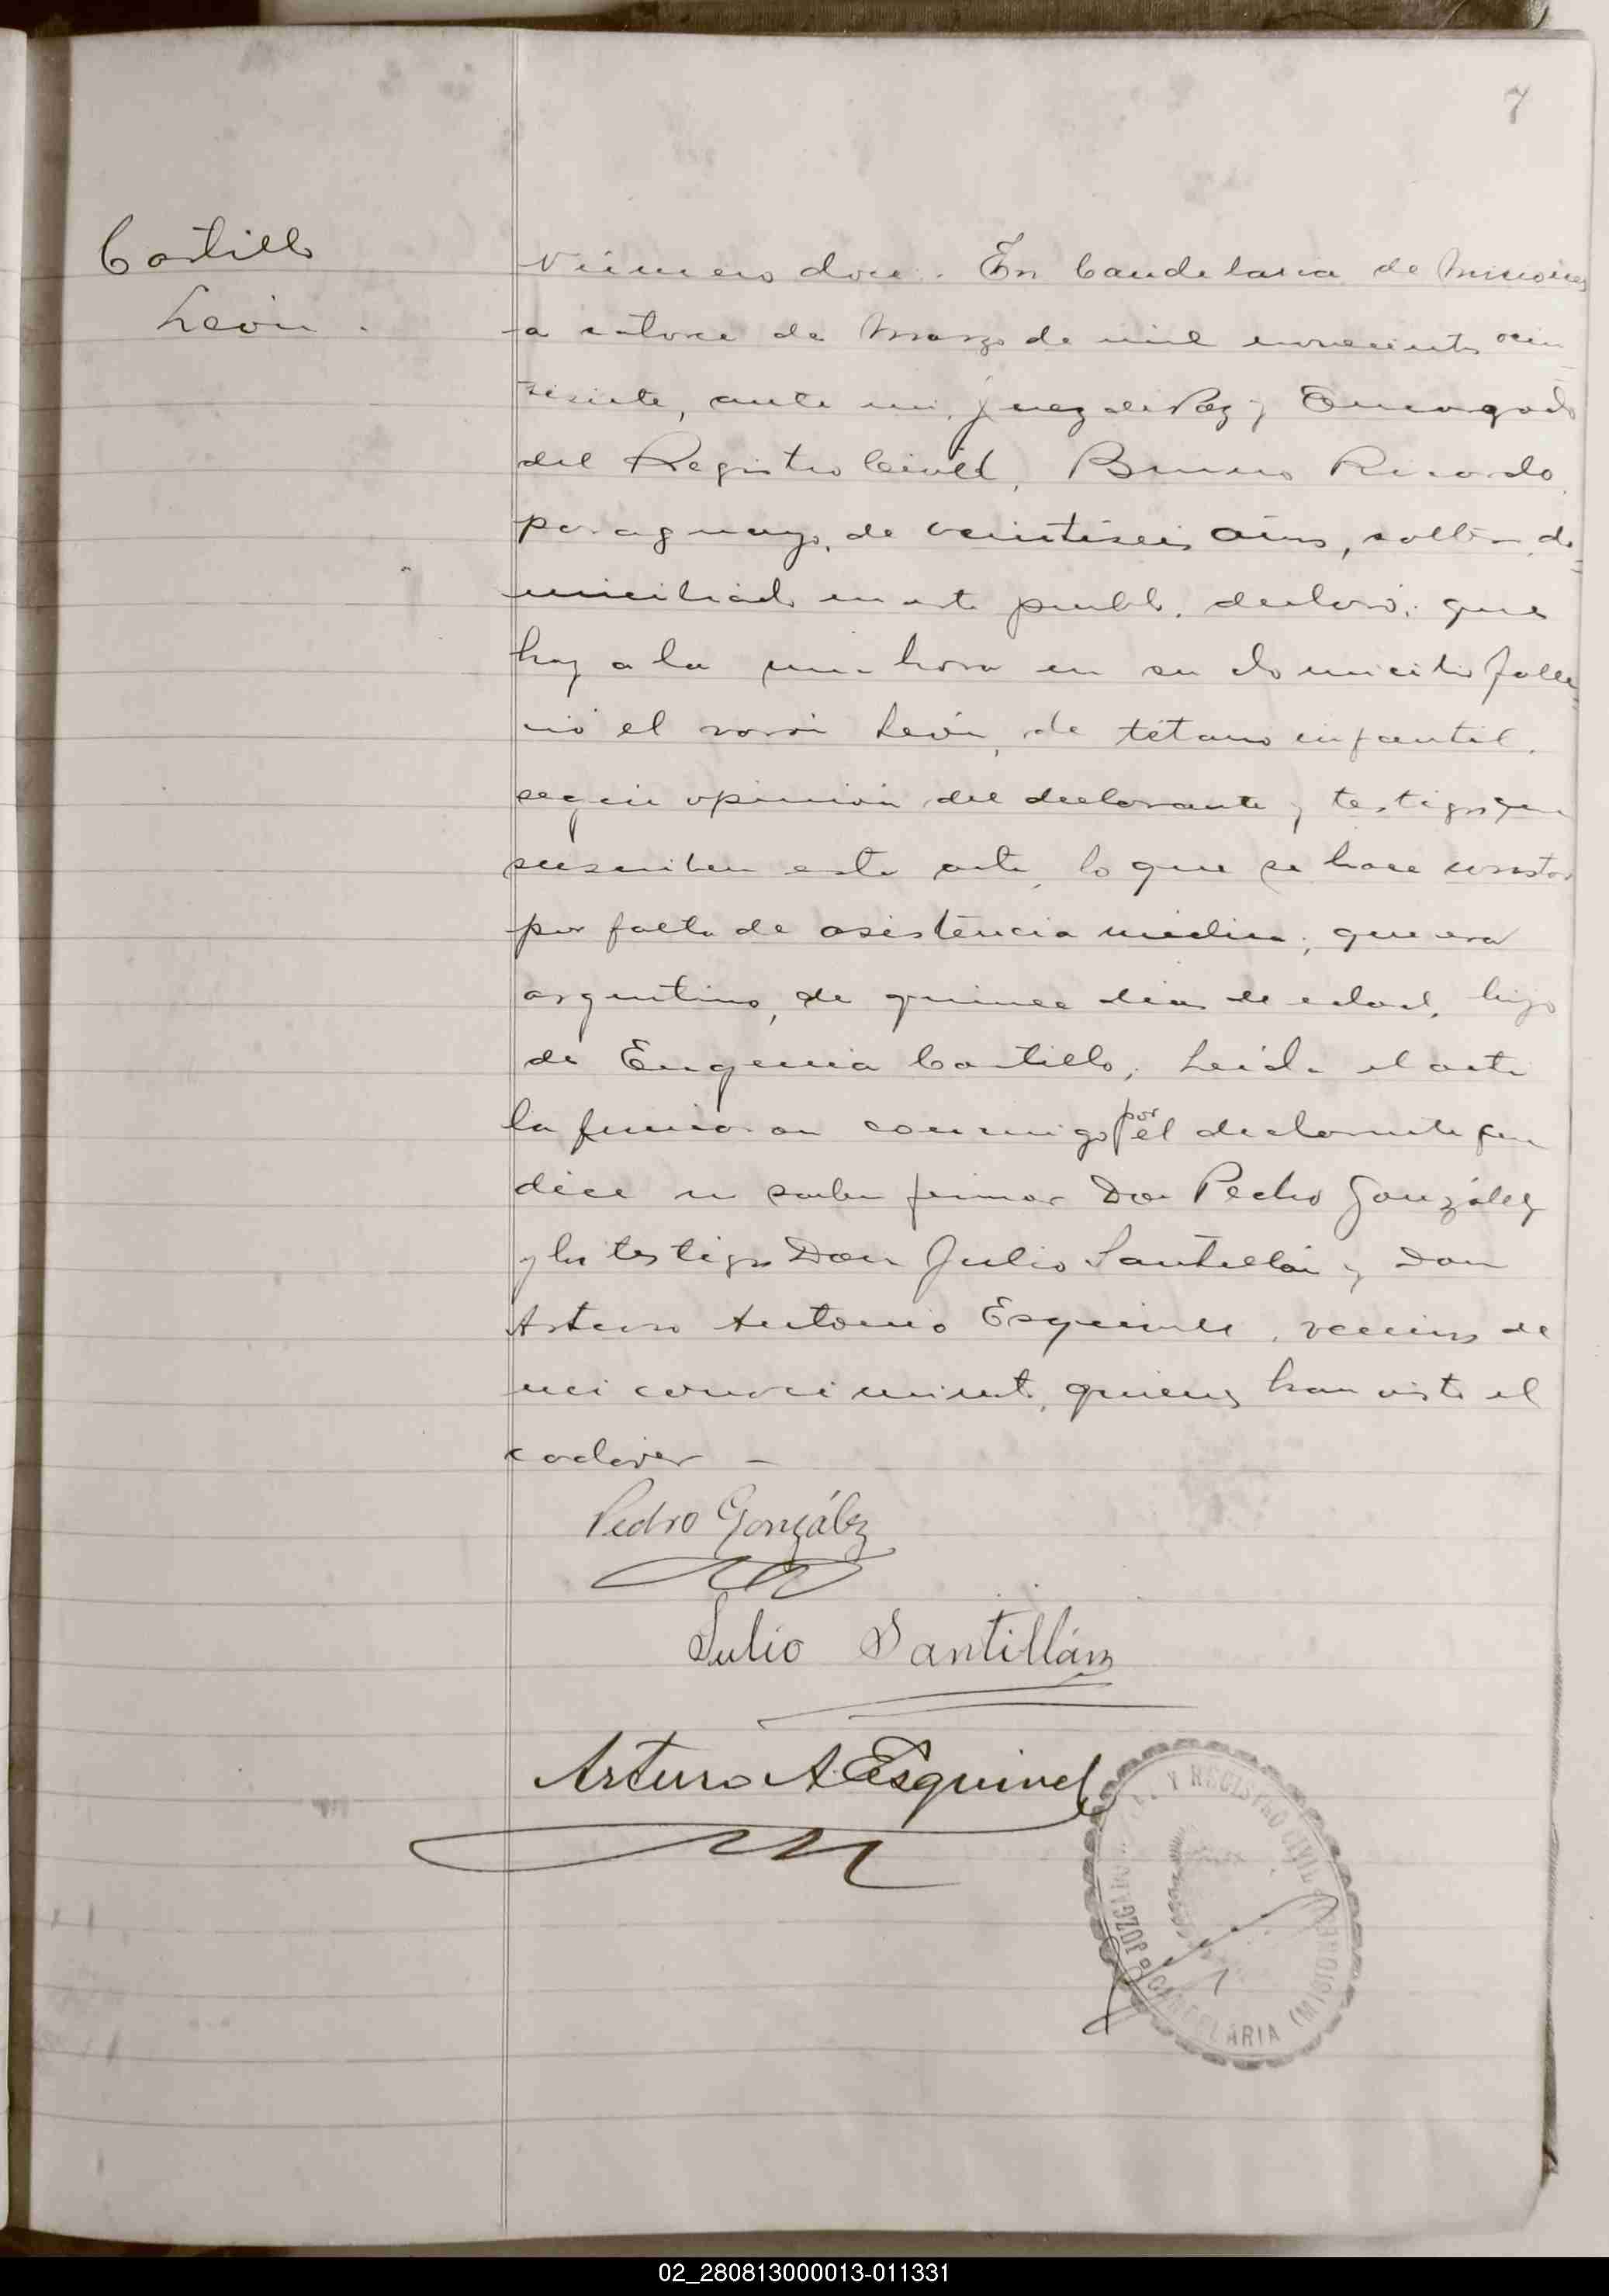 7
Castillo
León.
Número doce. En Candelaria de Misiones
a catorce de Marzo de mil novecientos
tisiete, ante mi, Juez de Paz y Encargado
del Registro Civil, Bruno Ricardo,
paraguayo, de veintiseis años, soltero, do=
miciliado en este pueblo, declaró: que
hoy a la una hora en su domicilio falle=
ció el varón León, de tétano infantil,
según opinión del declarante y testigos que
suscriben este acta, lo que se hace constar
por falta de asistencia medica; que era
argentino, de quince dias de edad, hijo
de Eugenia Castillo; Leida el acta
la firmaron conmigo por el declarante que
dice no saber firmar Don Pedro González
y los testigos Don Julio Santillán y Don
Arturo Antonio Esquivel, vecinos de
mi conocimiento, quienes han visto el
cadáver —
Pedro González
Julio Santillán
Arturo A. Esquivel
JUZGADO DE PAZ Y REGISTRO CIVIL
CANDELARIA (MISIONES)
02_280813000013-011331